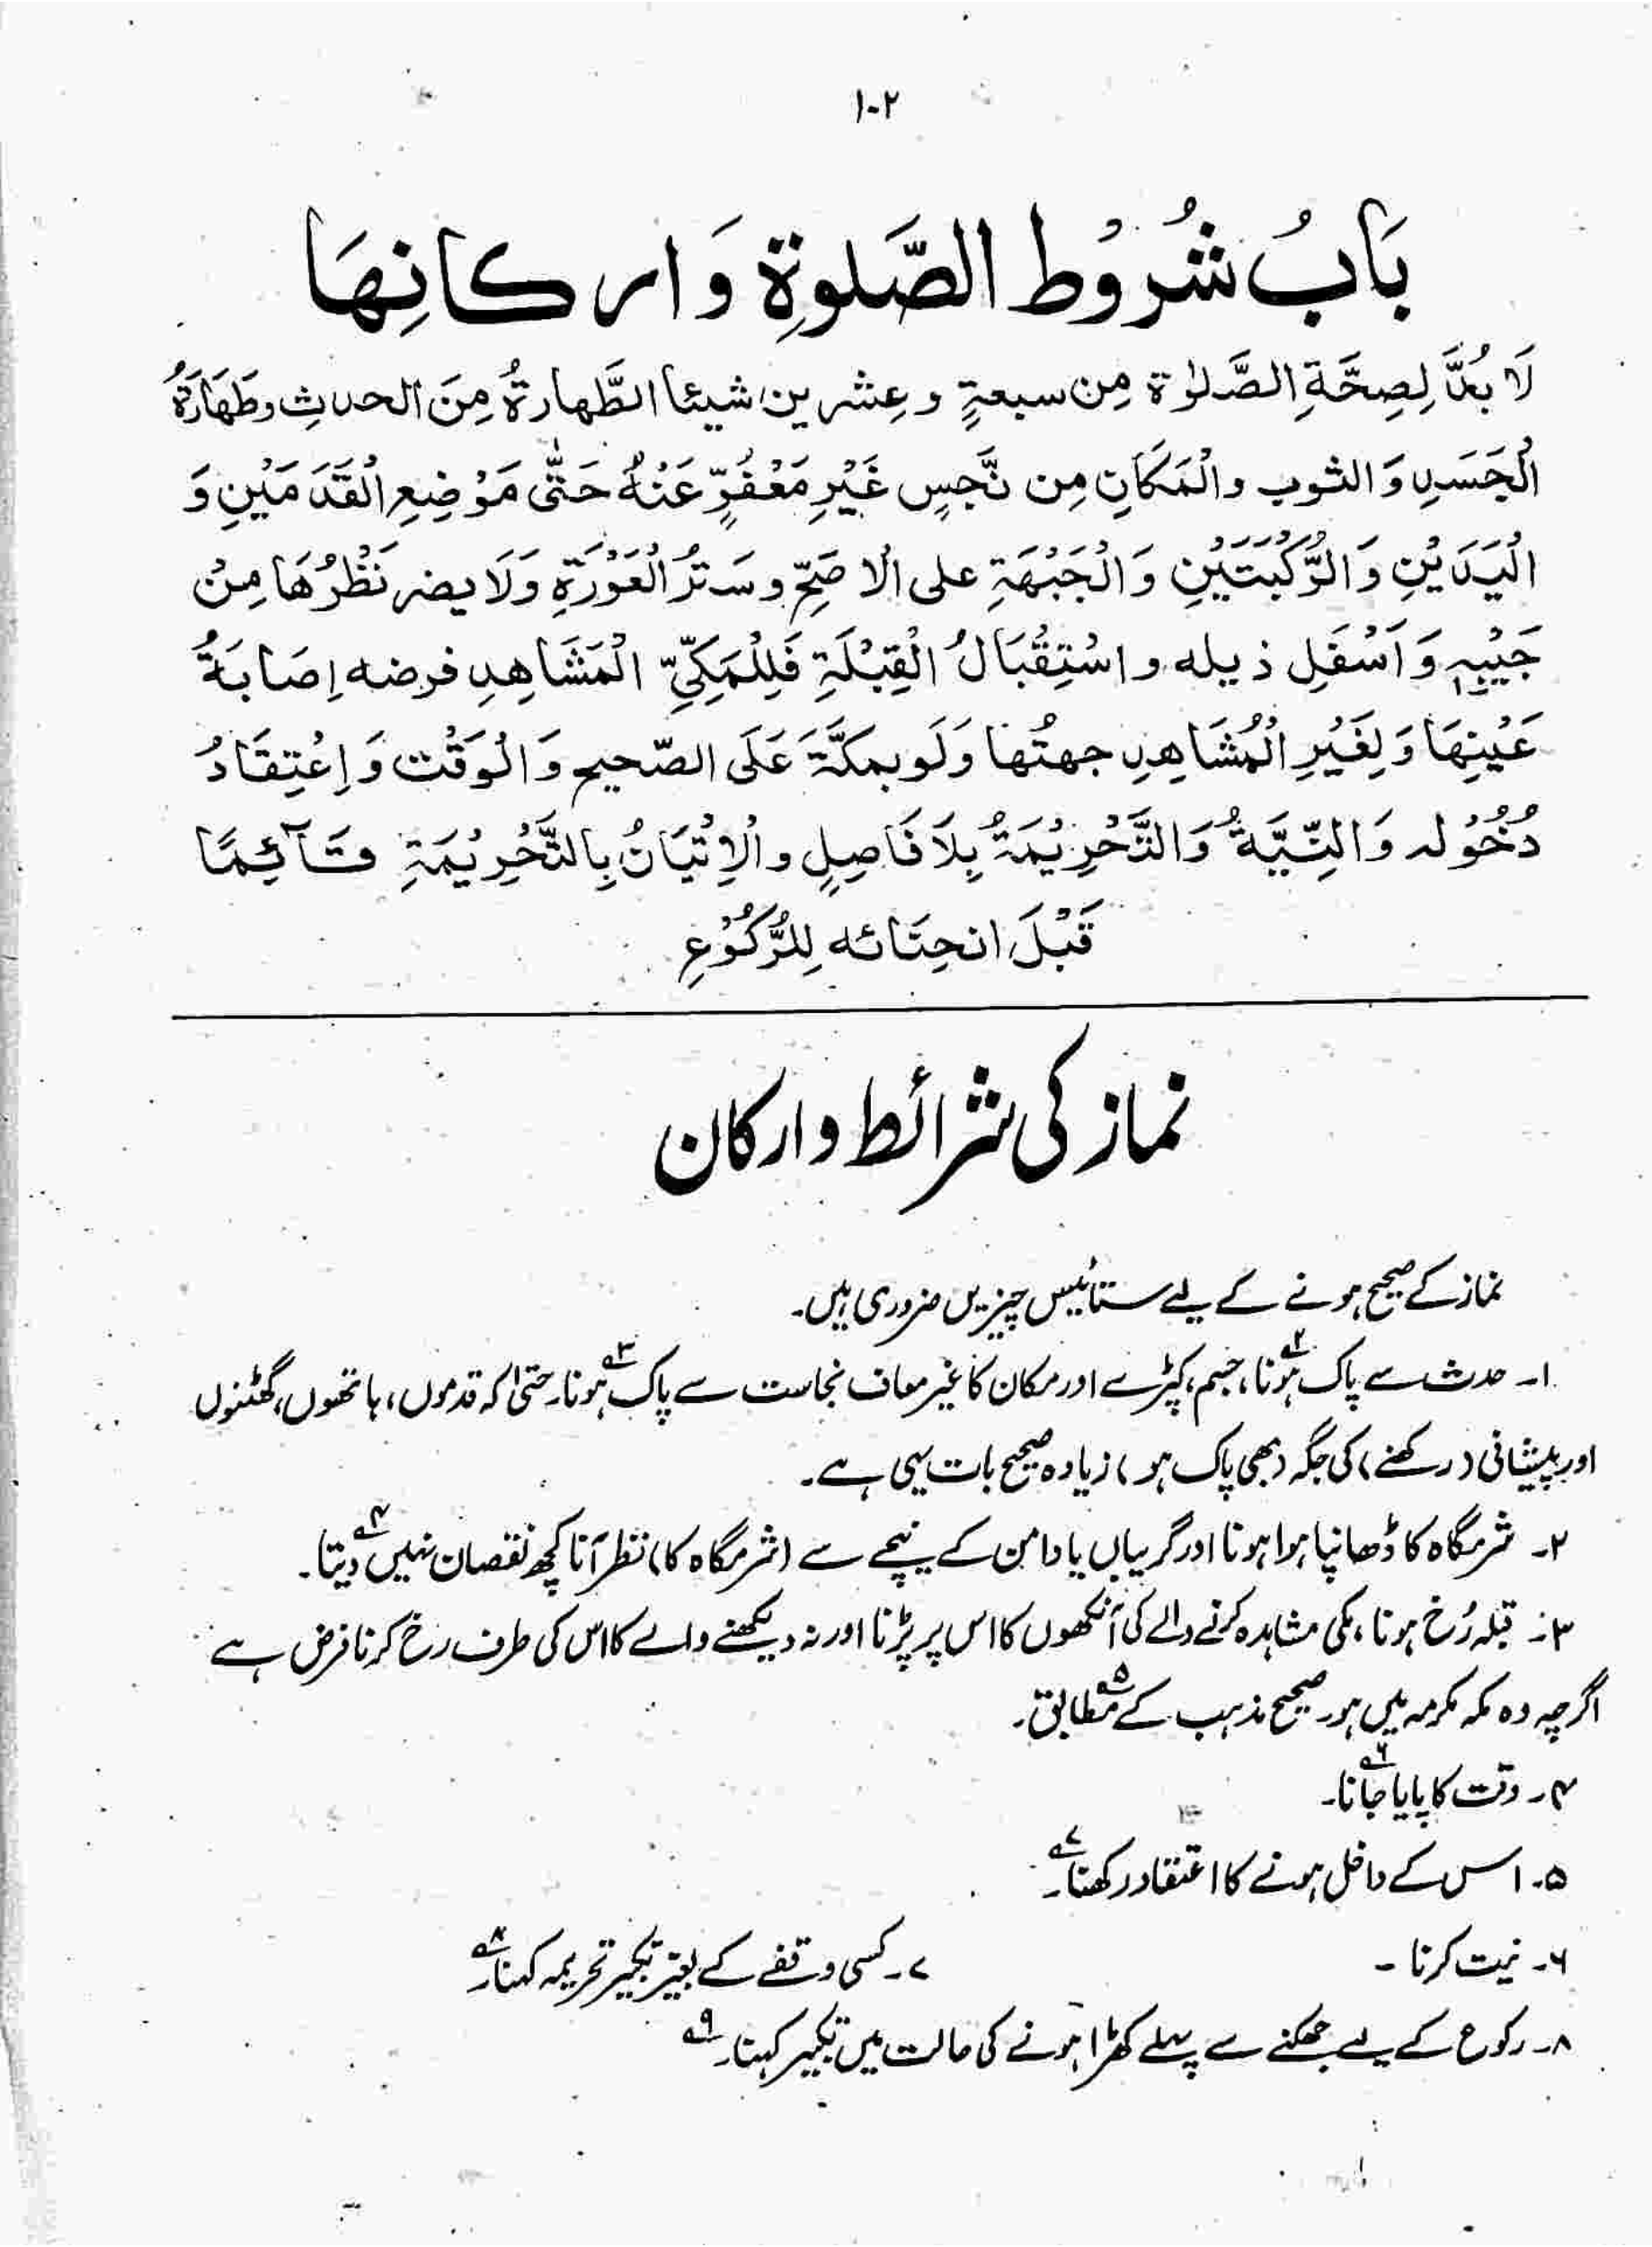 ۱۰۲
بَابُ شُرُوْطِ الصَّلٰوةِ وَارکَانِهَا
لَا بُدَّ لِصِحَّةِ الصَّلٰوة مِن سبعةٍ وعِشرين شیئا الطَّهارۃُ مِنَ الحدثِ وطَهَارَۃُ
الْجَسَدِ وَ الثوب والْمَكَانِ مِن نَّجِسٍ غَيْرِ مَعْفُوٍّ عَنْهُ حَتّٰى مَوْضِعِ الْقَدَمَيْنِ وَ
الْيَدَيْنِ وَ الرُّكْبَتَيْنِ وَ الْجَبْهَةِ على الْاصَحِّ وسَتْرُ الْعَوْرَةِ وَلَا یضر نَظْرُهَا مِنْ
جَيْبِهٖ وَ اَسْفَلِ ذیله واسْتِقْبَالُ الْقِبْلَةِ فَلِلْمَكِّيِّ الْمَشَاهِدِ فرضه اِصَابَةُ
عَيْنِهَا وَلِغَيْرِ الْمُشَاهِدِ جهتُها وَلَو بمكَّةَ عَلَى الصّحیح وَ الْوَقْت وَ اِعْتِقَادُ
دُخُوْلِه وَ النِّيَّةُ وَ التَّحْرِيْمَةُ بِلَا فَاصِلٍ والْاِتْيَانُ بِالتَّحْرِيْمَةِ قَآئِمًا
قَبْلَ انحِنَائه لِلرُّكُوْعِ
نماز کی شرائط و ارکان
نماز کے صحیح ہونے کے لیے ستائیس چیزیں ضروری ہیں۔
۱۔ حدث سے پاک ہونا۲، جسم، کپڑے اور مکان کا غیر معاف نجاست سے پاک ہونا۳۔ حتیٰ کہ قدموں، ہاتھوں، گھٹنوں
اور پیشانی (رکھنے) کی جگہ (بھی پاک ہو) زیادہ صحیح بات یہی ہے۔
۲۔ شرمگاہ کا ڈھانپا ہوا ہونا اور گریباں یا دامن کے نیچے سے (شرمگاہ کا) نظر آنا کچھ نقصان نہیں۴ دیتا۔
۳۔ قبلہ رُخ ہونا، مکی مشاہدہ کرنے والے کی آنکھوں کا اس پر پڑنا اور نہ دیکھنے والے کا اس کی طرف رخ کرنا فرض ہے
اگرچہ وہ مکہ مکرمہ میں ہو۔ صحیح مذہب کے مطابق۵۔
۴۔ وقت کا پایا جانا۶۔
۵۔ اس کے داخل ہونے کا اعتقاد رکھنا۷۔
۶۔ نیت کرنا ۔ ۷۔ کسی وقفے کے بغیر تکبیر تحریمہ کہنا۸۔
۸۔ رکوع کے لیے جھکنے سے پہلے کھڑا ہونے کی حالت میں تکبیر کہنا۔۹